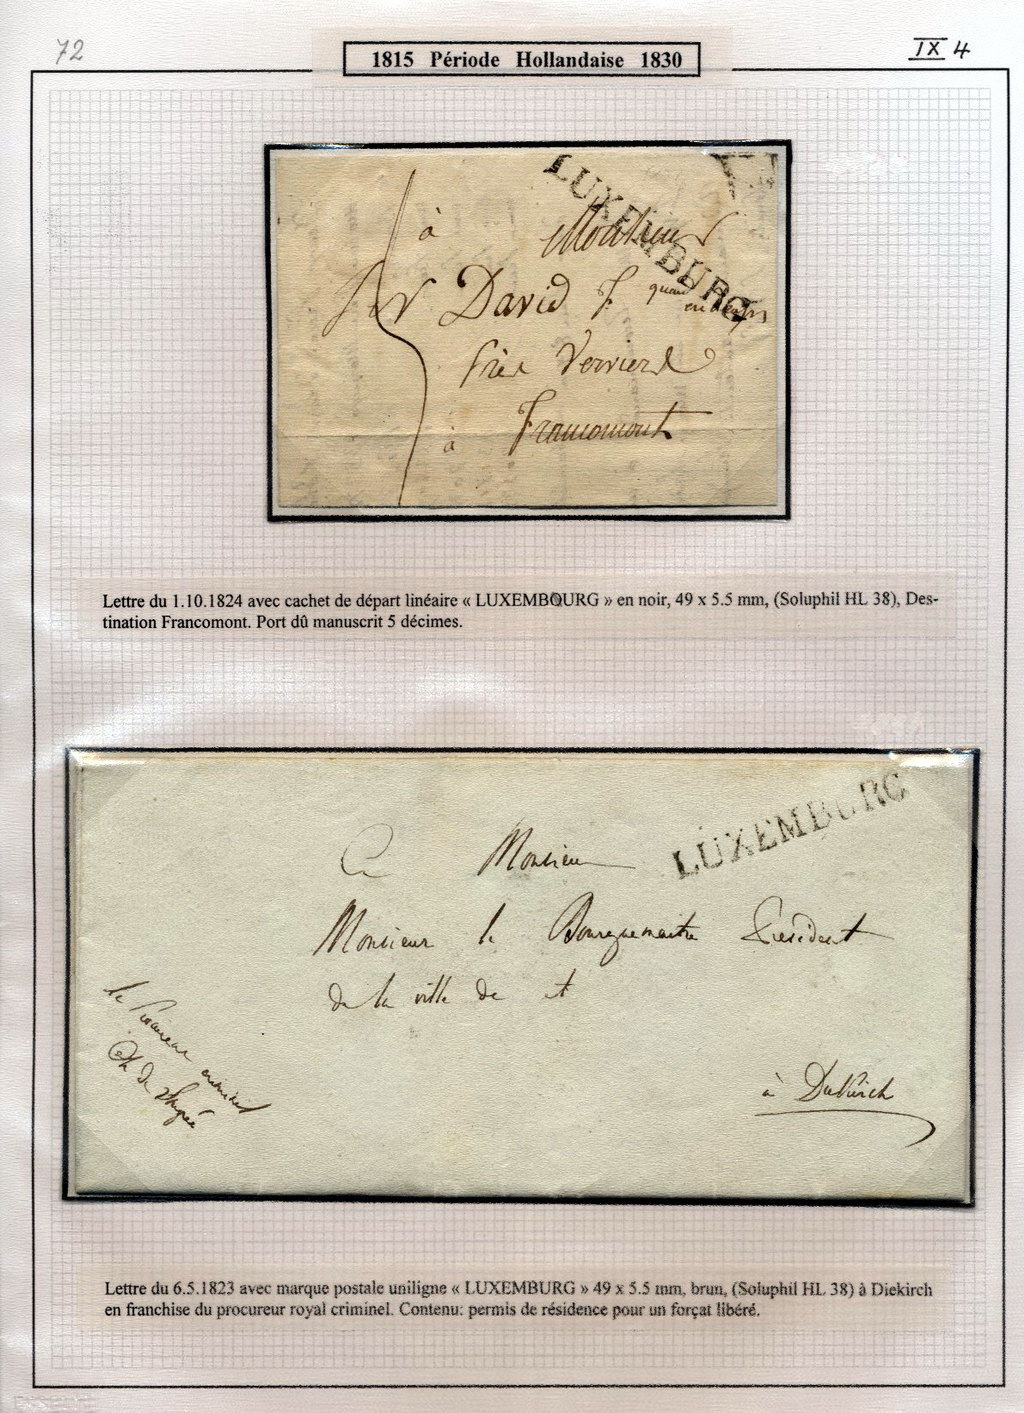 72
IX 4
1815 Période Hollandaise 1830
LUXEMBURG
à Monsieur
David F
près Verviers
à Francomont
Lettre du 1.10.1824 avec cachet de départ linéaire « LUXEMBOURG » en noir, 49 x 5.5 mm, (Soluphil HL 38), Des-
tination Francomont. Port dû manuscrit 5 décimes.
LUXEMBURG
A Monsieur
Monsieur le Bourguemaitre Président
de la ville de et
à Diekirch
le Procureur criminel
Lettre du 6.5.1823 avec marque postale uniligne « LUXEMBURG » 49 x 5.5 mm, brun, (Soluphil HL 38) à Diekirch
en franchise du procureur royal criminel. Contenu: permis de résidence pour un forçat libéré.